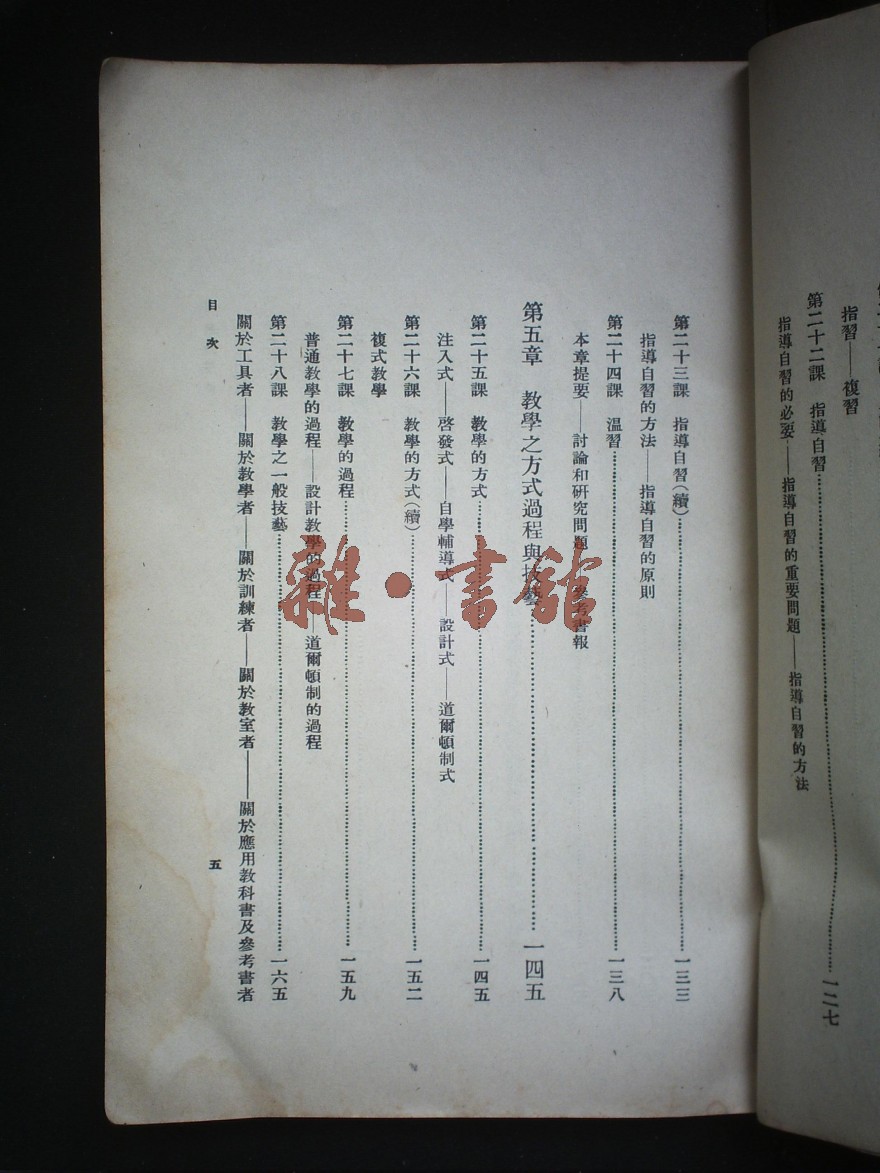 指習——複習
第二十二課　指導自習……一二七
指導自習的必要——指導自習的重要問題——指導自習的方法
第二十三課　指導自習(續)……一三三
指導自習的方法——指導自習的原則
第二十四課　溫習……一三八
本章提要——討論和研究問題——參考書報
第五章　教學之方式過程與技藝……一四五
第二十五課　教學的方式……一四五
注入式——啓發式——自學輔導式——設計式——道爾頓制式
第二十六課　教學的方式(續)……一五二
複式教學
第二十七課　教學的過程……一五九
普通教學的過程——設計教學的過程——道爾頓制的過程
第二十八課　教學之一般技藝……一六五
關於工具者——關於教學者——關於訓練者——關於教室者——關於應用教科書及參考書者
目次
五
雜·書館